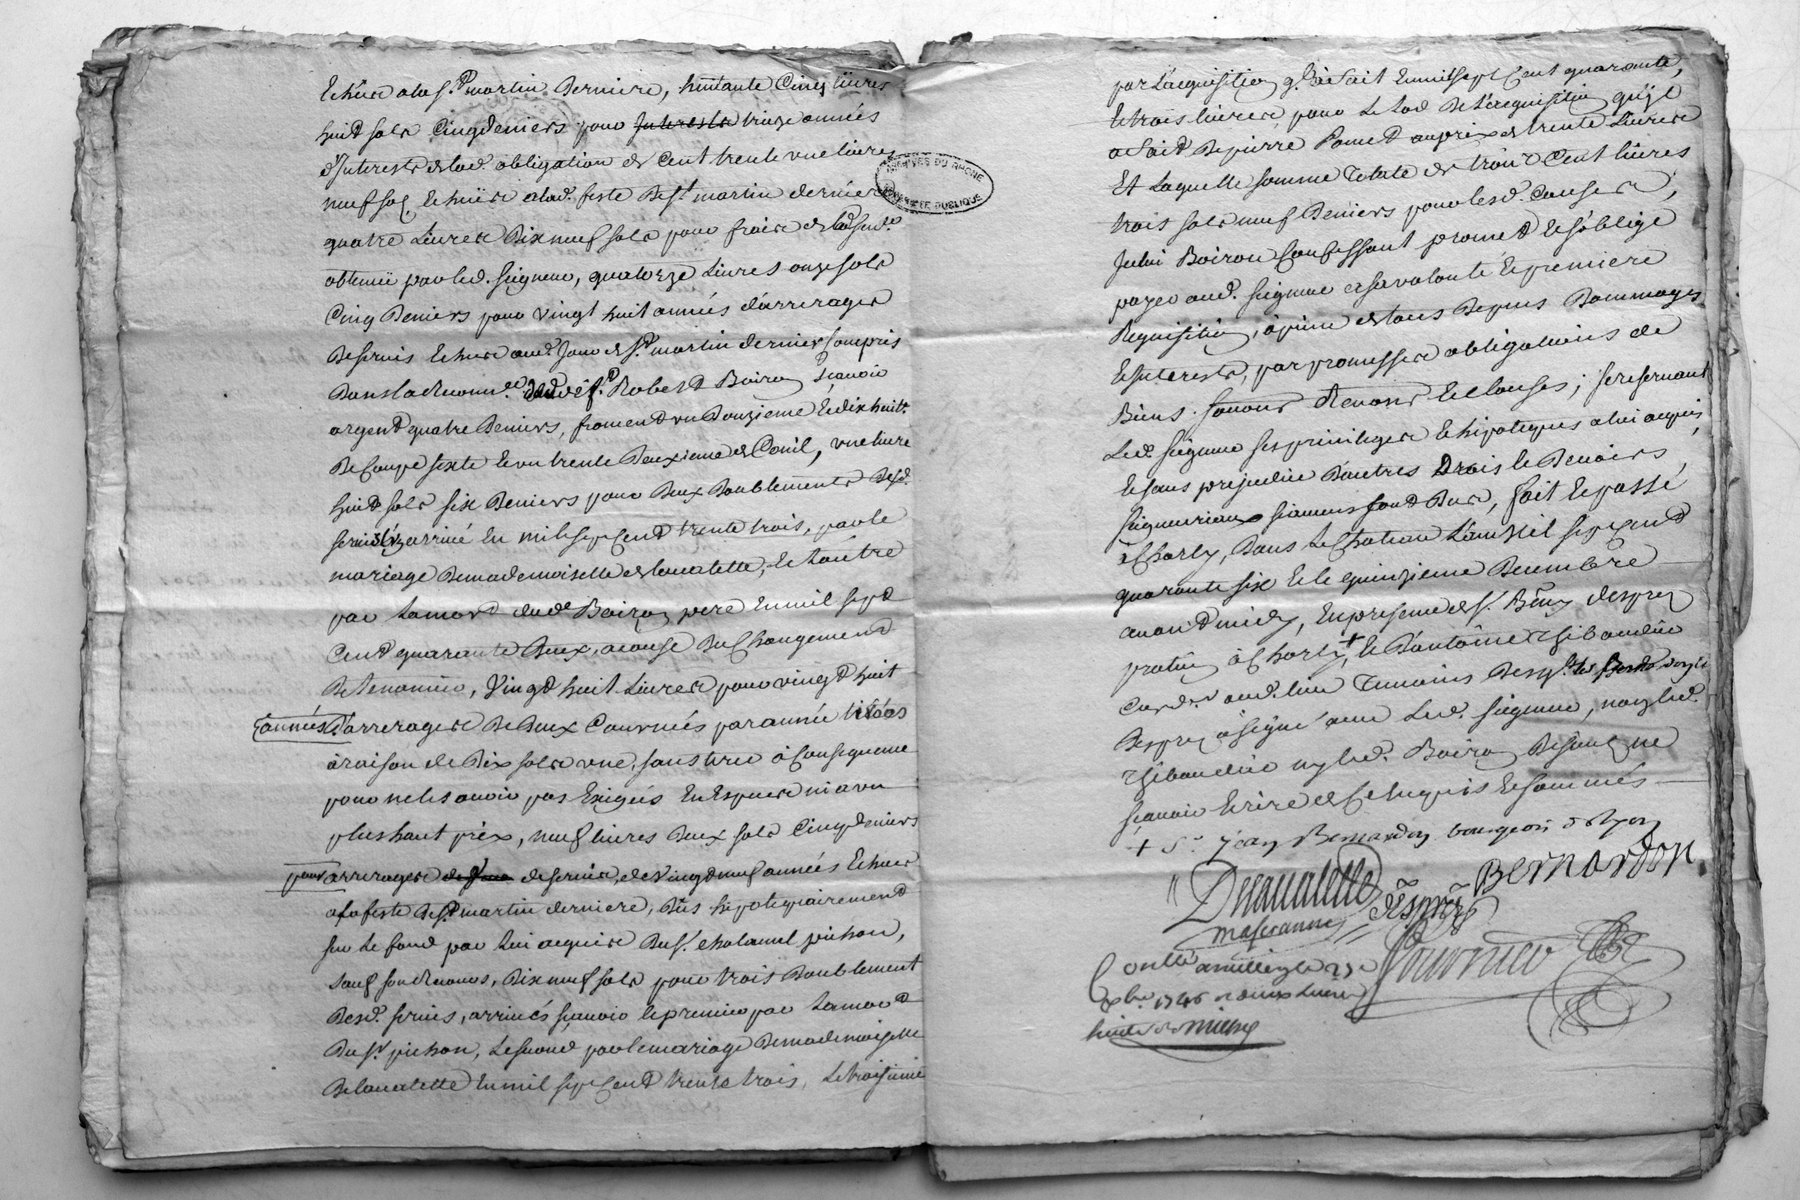 Echüe a la s.t martin Derniere, huittante Cinq livres
huit sols Cinq deniers pour Interests treize années
d'Interests de lad. obligation de Cent trente une livres
neuf sols Echüise a lad. feste De s.t martin derniere
quatre Livres Dix neuf sols pour fraix de lad. sent.ce
obtenüe par led. seigneur, quatorze Livres onze sols
Cinq Deniers pour vingt huit années d'arrerages
De servis Echus aud. Jour de s.t martin dernier Compris
Dans la Reconn.ce Robert Boiron sçavoir
argent quatre Deniers, froment un Douzieme Et dix huit.
De Coupe sixte Et un trente Deuxieme de Conil, une livre
huit sols six Deniers pour Deux Doublements Desd.
servis arrivé En mil sept Cent trente trois, par le
mariage De mademoiselle de lavalette, Et l'autre
par La mort dud. Boiron pere En mil sept
Cent quarante Deux, a cause Du Changement
De Tenancier, Vingt huit Livres pour vingt huit
années d'arrerages De Deux Courvées par année
à raison de Dix sols une, sans tirer à Consequence
pour ne les avoir pas Exigées En Espece ni a un
plus haut prix, neuf livres Deux sols Cinq deniers
pour arrerages de servis, de Vingt neuf années Echus
a la feste De s.t martin derniere, Dûs hipotequairement
sur Le fond par Lui acquis Du s.r chalamel pichon,
sauf son Recours, Dix neuf sols pour trois Doublement
Desd. servis, arrivés sçavoir le premier par La mort
Du s.r pichon, Le second par le mariage De mademoiselle
De lavalette En mil sept Cent trente trois, Le troisieme
ARCHIVES DU RHONE
PROPRIETE PUBLIQUE
par L'acquisition q.l a fait En mil sept Cent quarante,
Et trois livres, pour Le Lod De L'acquisition qu'il
a fait De pierre Ponnet au prix de trente Livres
Et Laquelle somme Totale de trois Cent livres
trois sols neuf Deniers pour lesd. Causes,
Led. Boiron Confessant promet Et s'oblige
payer aud. seigneur a sa volonté Et premiere
Requisition, à peine de tous Depens Dommages
Et Interests, par promesses obligations de
Biens. Renons Et Clauses; se reservant
Led. seigneur ses privileges Et hipoteques a lui acquis,
Et sans prejudice D'autres Drois Et Devoirs
seigneuriaux si aucuns sont Dus, fait Et passé
à Charly, Dans Le Chateau L'an Mil sept Cent
quarante six Et le quinzieme Decembre
avant midy, En presence de s.r Beny desprez
praticien à Charly +, Et D'antoine Thibaudier
Cord.r aud. lieu Temoins
Desprez a signé avec Led. seigneur, non led.
Thibaudier ny led. Boiron De ce ne
sçavoir Ecrire de Ce Enquis Et sommés
+ S.r jean Bernardon bourgeois de lyon
Delavalette
despréz
BERNARDON
masscranny
Fournier
Con.llé a millery le
xbre 1746
huit sols